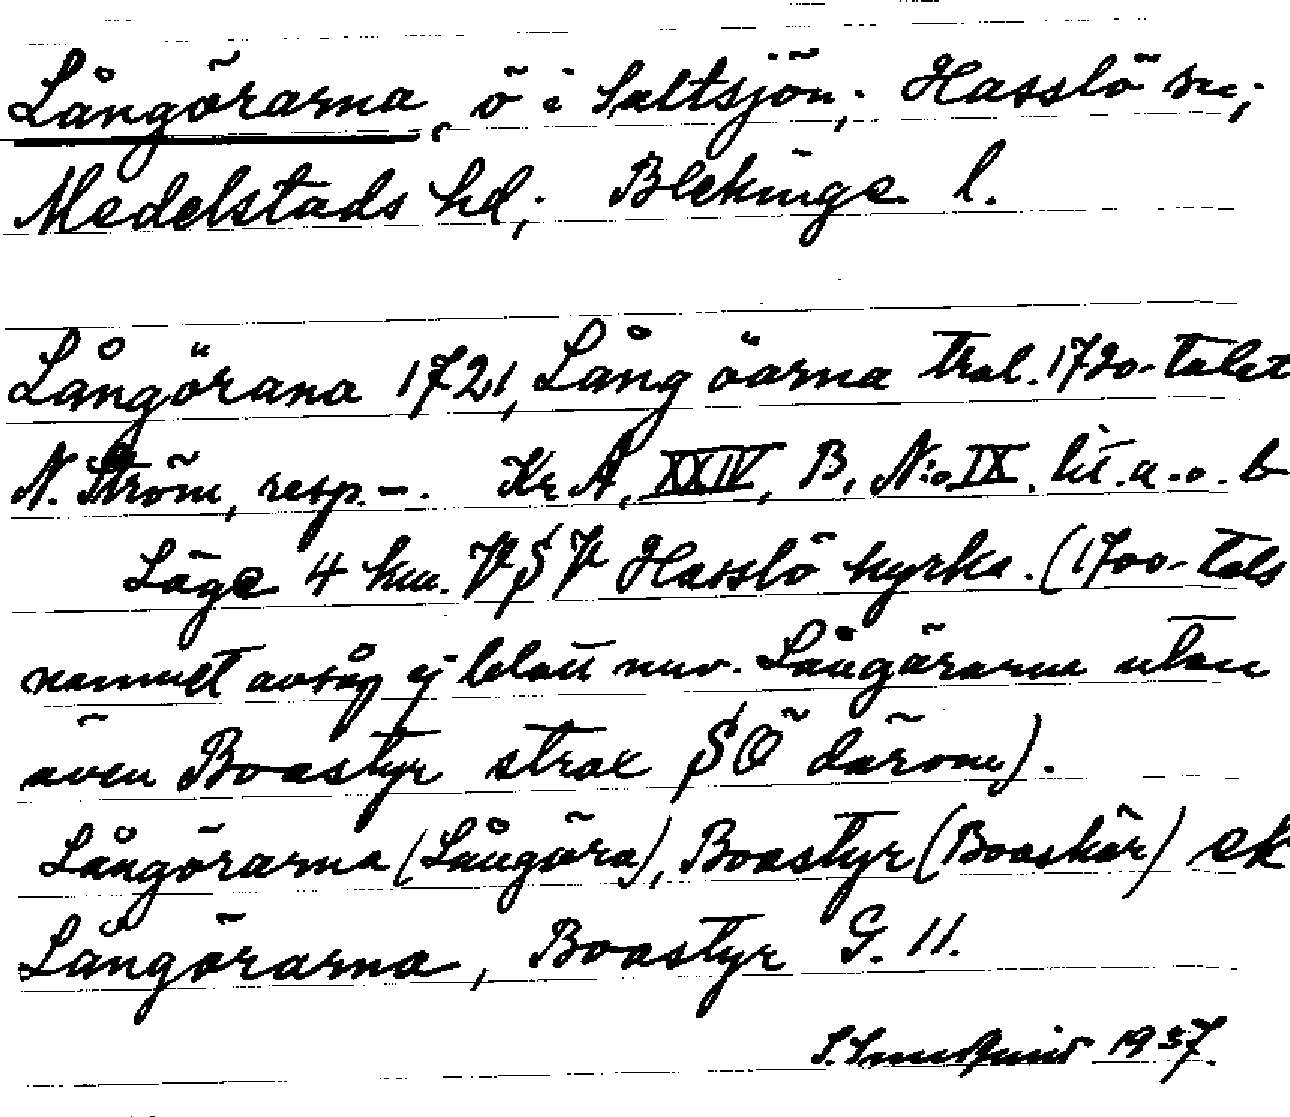 Långörarna, ö i Saltsjön; Hasslö sn;
Medelstads hd; Blekinge l.
Långörana 1721, Lång öarna tral. 1720-talet
N. Ström, resp. -. Kr. A, XXIV, B, N:o IX. lit. a. o. b
Läge 4 km. VSV Hasslö kyrka. (1700-tals
namnet avsåg ej blott nuv. Långörarna utan
även Boastyr strax SÖ därom).
Långörarna (Långöra), Boastyr (Boaskär) ek
Långörarna, Boastyr G. 11.
1937.